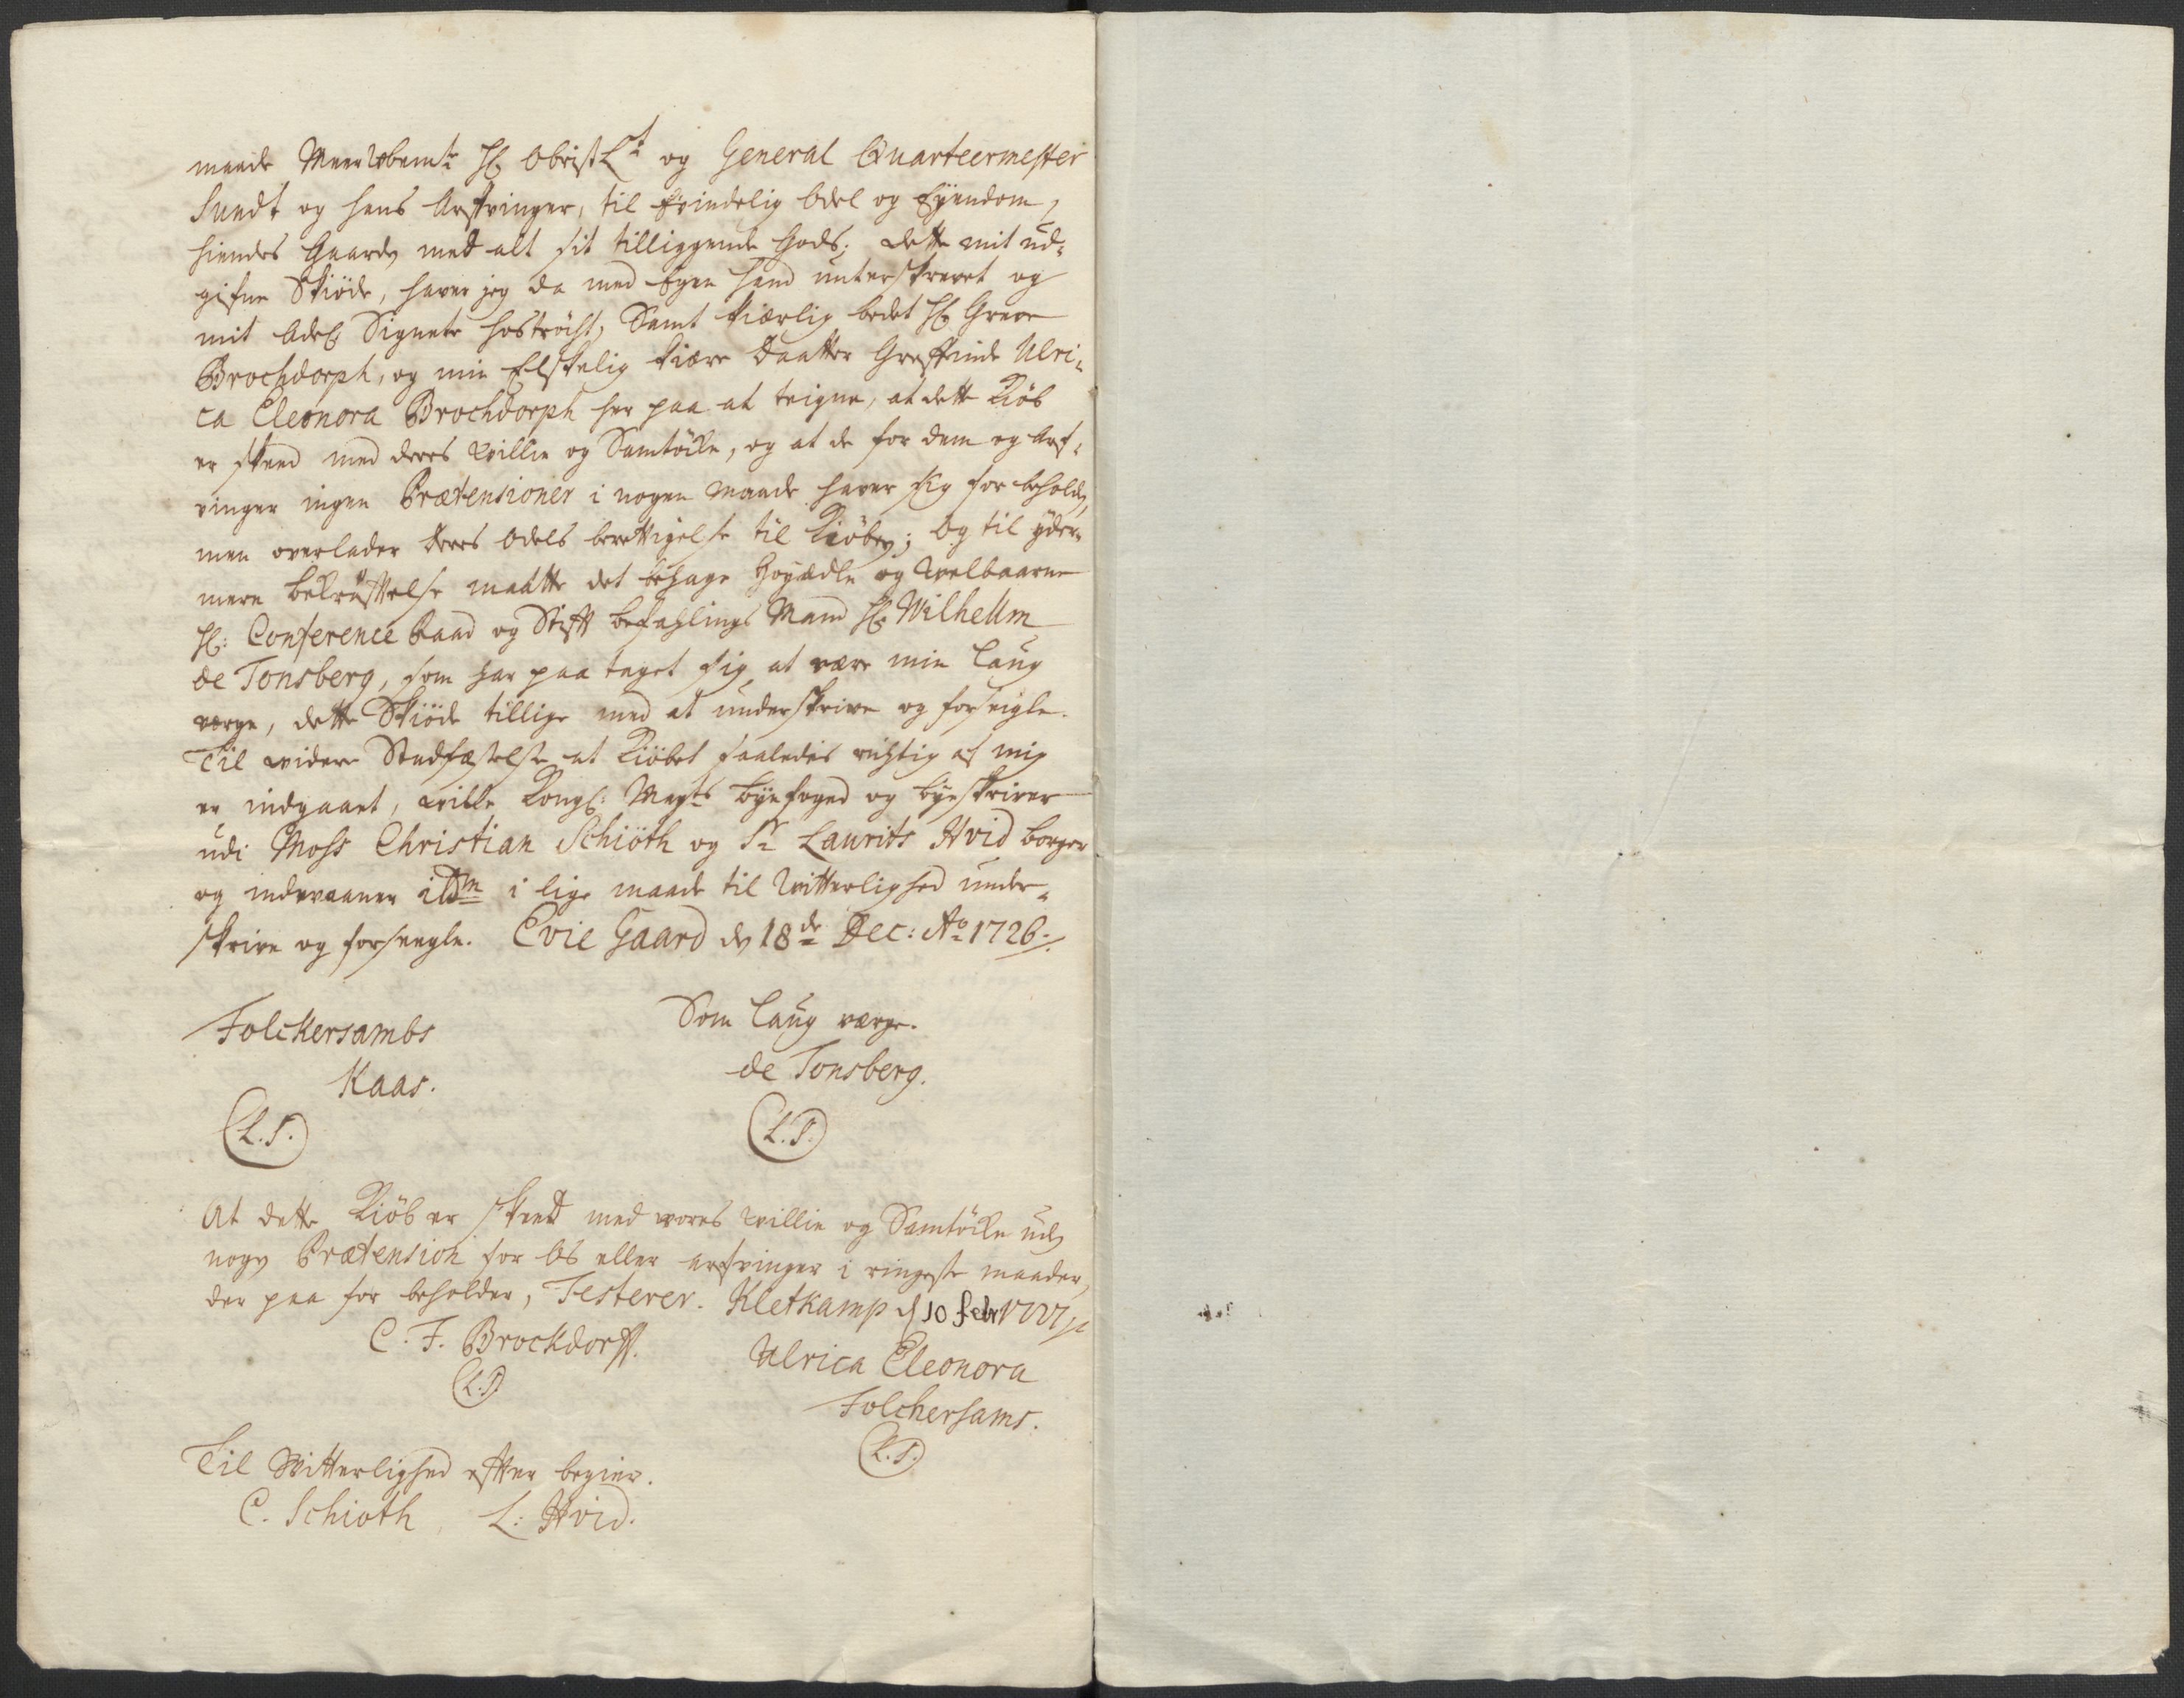 maade Meerbemte Hr ObristLt og General Quarteermester
Sundt og hans Arfvinger, til Evindelig Odel og Eyendom,
hiendes Gaarde med alt sit tilliggende Gods; dette mit ud-
gifne Skiöde, haver jeg da med Egen Hand unterskrevet og
mit Adel Signete hostrÿcht, Samt kiærlig bedet Hr Greve
Brochdorph, og min Elskelig kiære Daatter Greffinde Ulri-
ca Eleonora Brochdorph her paa at teigne, at dette Kiöb
er skeed med deres Willie og Samtöcke, og at de for dem og Arf-
vinger ingen Prætensioner i nogen maade haver sig forbeholdn,
men overlader deres Odels berettigelse til Kiöbern; Og til yder-
mere bekræfftelse maatte det behage Höyædle og Welbaarne
Hr: Conference Raad og Stifft befahlings Mand Hr Wilhellm
de Tonsberg, som har paa taget sig at være min Laug
verge, dette Skiöde tillige med at underskrive og forseigle.
Til widere Stadfæstelse at Kiöbet saaledis richtig af mig
er indgaaet, wille Kongl: Mayts Byefoged og byeskriver
udi Moss Christian Schiöth og Sr Laurits Hvid borger
og indwaaner ibdm i lige maade til Witterlighed under-
skrive og forseegle. Evie Gaard dn 18de Dec: Ao 1726.
Folckersambs Som Laug verge.
Kaas. de Tonsberg.
L.S. L.S.
At dette Kiöb er skeed med vores Willie og Samtöcke uden
nogn Prætension for Os eller arfvinger i ringeste maader,
der paa for beholder, Testerer. Kletkamp d 10 Febr 1727
C. F. Brockdorff. Ulrica Eleonora
L.S. Folchersams.
L.S.
Til Witterlighed efter begier.
C. Schioth, L: Hvid.